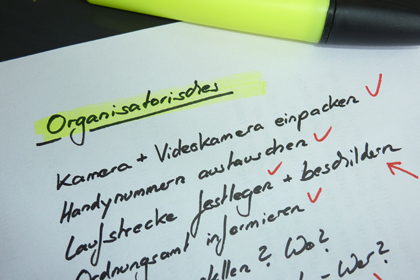 Organisatorisches
Kamera + Videokamera einpacken
Handynummern austauschen
Laufstrecke festlegen + beschildern
Ordnungsamt informieren
? Wo?
- Wer?